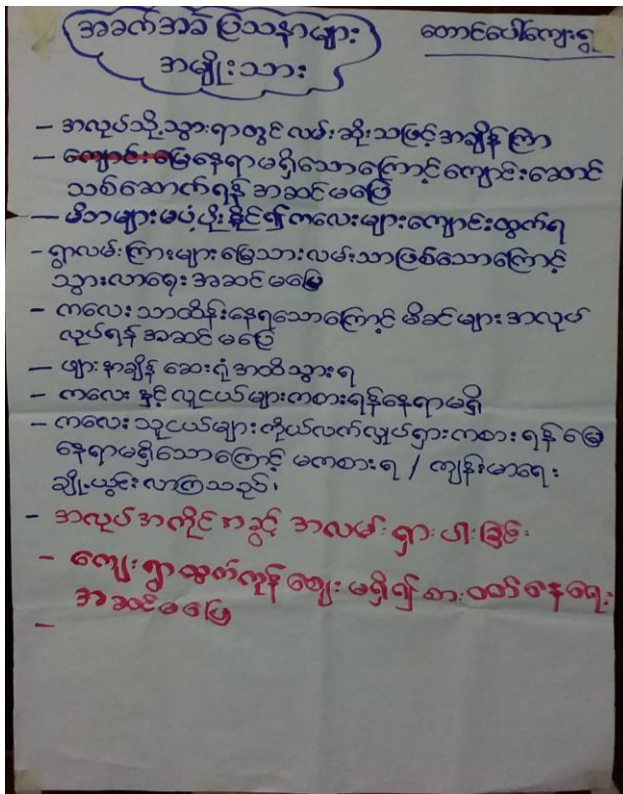 အခက်အခဲ ပြသနာများ
အမျိုးသား
တောင်ပေါ်ကျေးရွာ
- အလုပ်သို့သွားရာတွင် လမ်းဆိုးသဖြင့် အချိန်ကြာ
- ကျောင်းမြေနေရာမရှိသောကြောင့် ကျောင်းဆောင်
သစ်ဆောက်ရန် အဆင်မပြေ
- မိဘများမပံ့ပိုးနိုင်၍ ကလေးများကျောင်းထွက်ရ
- ရွာလမ်းကြားများ မြေသားလမ်းသာဖြစ်သောကြောင့်
သွားလာရေး အဆင်မပြေ
- ကလေးသာထိန်းနေရသောကြောင့် မိခင်များ အလုပ်
လုပ်ရန် အဆင်မပြေ
- ဖျားနာချိန် ဆေးရုံအထိသွားရ
- ကလေးနှင့်လူငယ်များကစားရန်နေရာမရှိ
- ကလေးသူငယ်များ ကိုယ်လက်လှုပ်ရှားကစားရန် မြေ
နေရာမရှိသောကြောင့် မကစားရ / ကျန်းမာရေး
ချို့ယွင်းလာကြသည်၊
- အလုပ်အကိုင်အခွင့်အလမ်းရှားပါးခြင်း
- ကျေးရွာထွက်ကုန်စျေးမရှိ၍ စားဝတ်နေရေး
အဆင်မပြေ
-